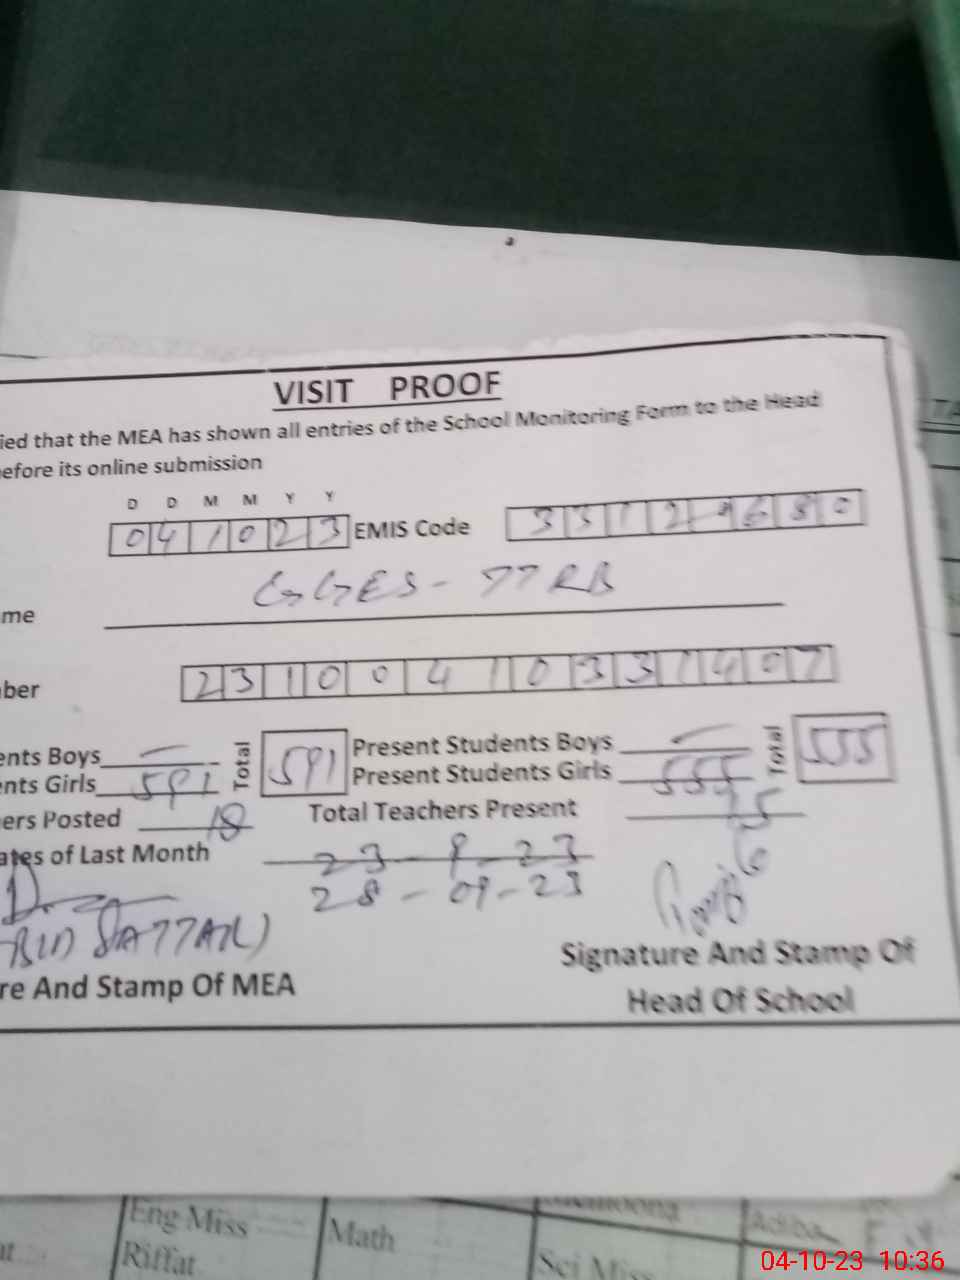 VISIT PROOF
ied that the MEA has shown all entries of the School Monitoring Form to the Head
efore its online submission
D D M M Y Y
041023 EMIS Code 331 680
GGES - 77 RB
me
ber 23100410331407
ents Boys — Total 591 Present Students Boys — Total 555
nts Girls 591 Present Students Girls 555
ers Posted 18 Total Teachers Present
ates of Last Month 23-9-23
28-09-23
SATTAR)
re And Stamp Of MEA
Signature And Stamp Of
Head Of School
Eng Miss
Riffat
Math
Sci Miss
04-10-23 10:36